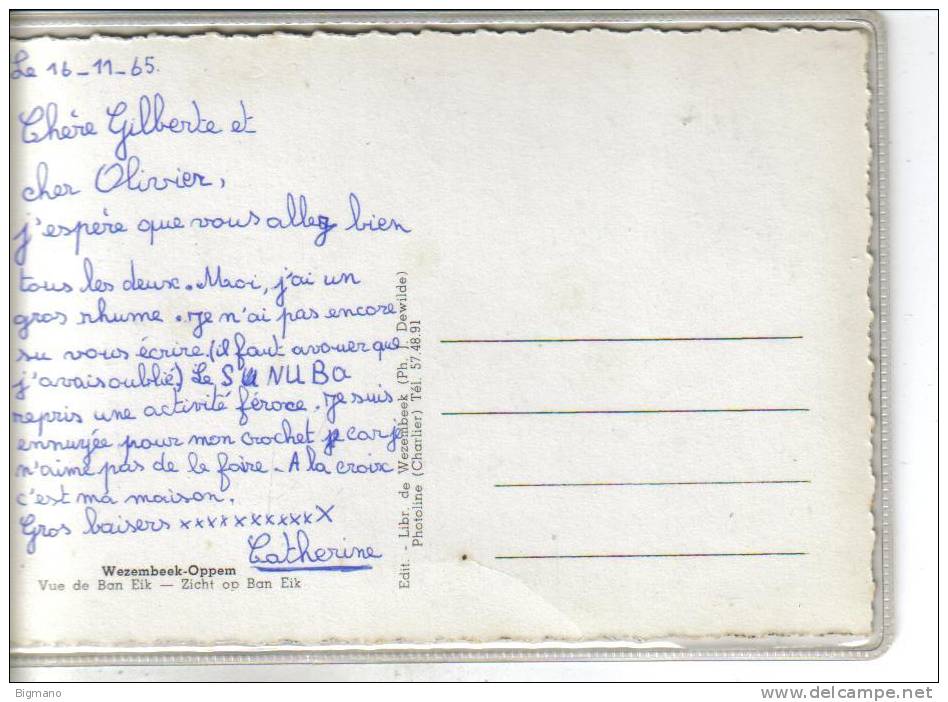 Le 16-11-65.
Chère Gilberte et
cher Olivier,
j'espère que vous allez bien
tous les deux. Moi, j'ai un
gros rhume. Je n'ai pas encore
su vous écrire. (il faut avouer que
j'avais oublié) Le SUNUBa
repris une activité féroce. Je suis
ennuyée pour mon crochet car je
n'aime pas de le faire. A la croix
c'est ma maison.
Gros baisers xxxxxxxxxxX
Catherine
Wezembeek-Oppem
Vue de Ban Eik — Zicht op Ban Eik
Edit. - Libr. de Wezembeek (Ph. J. Dewilde)
Photoline (Charlier) Tél. 57.48.91
Bigmano
www.delcampe.net